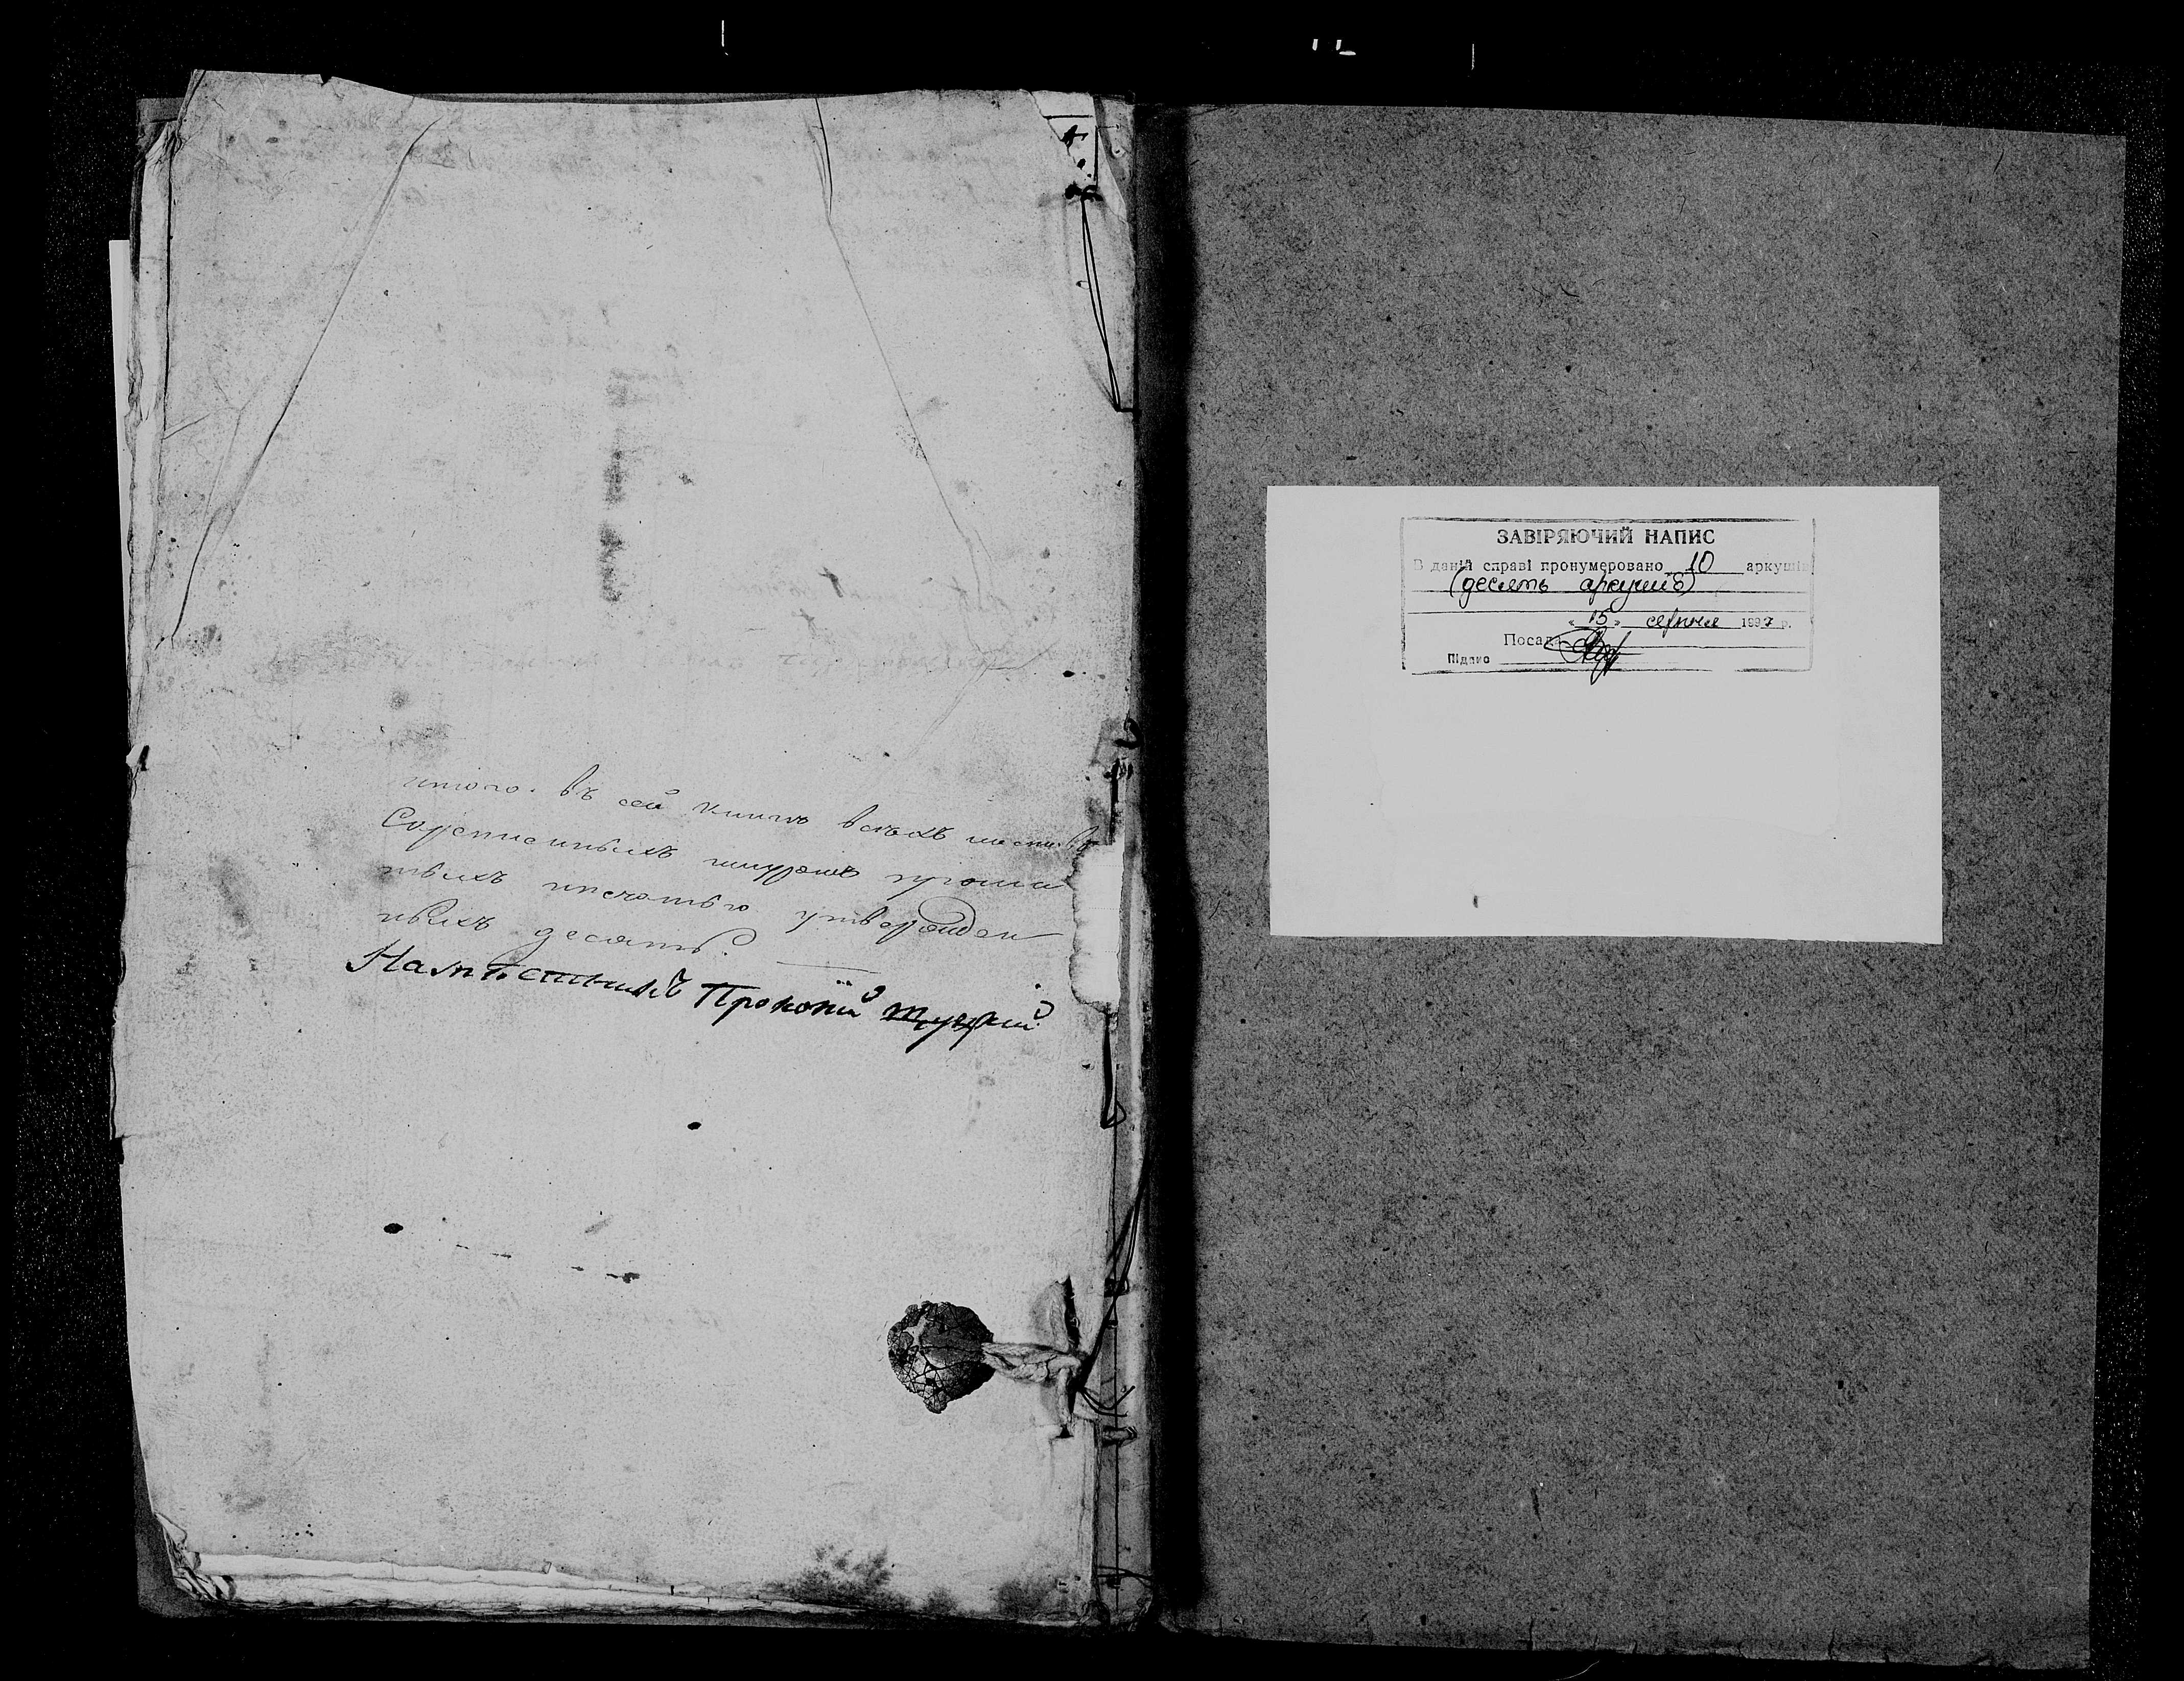 итого въ сей книгѣ всѣхъ листовъ
Скрепленныхъ шнуромъ проши
тыхъ ипечатью утвержден
ныхъ десять.
Намѣстникъ Прокопій
ЗАВІРЯЮЧИЙ НАПИС
В даній справі пронумеровано 10 аркушів
(десять аркушів)
« 15 » серпня 1997 р.
Посада
Підпис